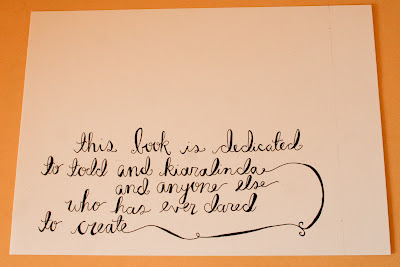 this book is dedicated
to todd and kiaralinda
and anyone else
who has ever dared
to create